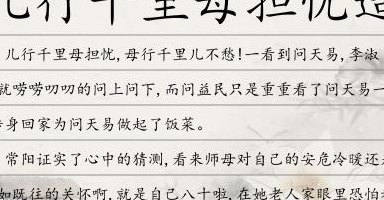 儿行千里母担忧
儿行千里母担忧,母行千里儿不愁!一看到问天易,李淑
就唠唠叨叨的问上问下,而问益民只是重重看了问天易一
身回家为问天易做起了饭菜。
常阳证实了心中的猜测,看来师母对自己的安危冷暖还
如既往的关怀啊,就是自己八十啦,在她老人家眼里恐怕